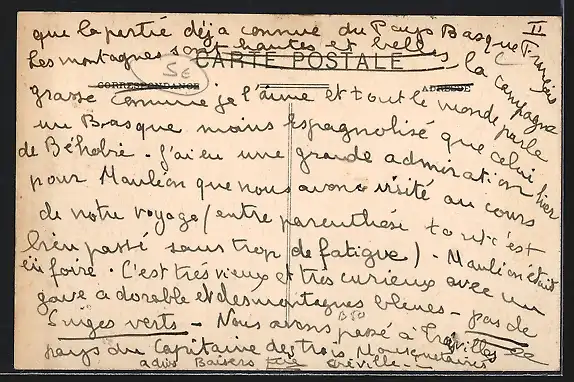 II
que la partie déjà connue du Pays Basque Français
Les montagnes sont hautes et belles, la campagne
5€
CARTE POSTALE
CORRESPONDANCE ADRESSE
grasse comme je l'aime et tout le monde parle
un Basque moins espagnolisé que celui
de Béhobie. J'ai eu une grande admiration hier
pour Mauléon que nous avons visité au cours
de notre voyage (entre parenthèse tout c'est
bien passé sans trop de fatigue). Mauléon était
en foire. C'est très vieux et très curieux avec un
gave adorable et des montagnes bleues - pas de
Singes verts - Nous avons passé à
pays du Capitaine des trois Mousquetaires
Baisers